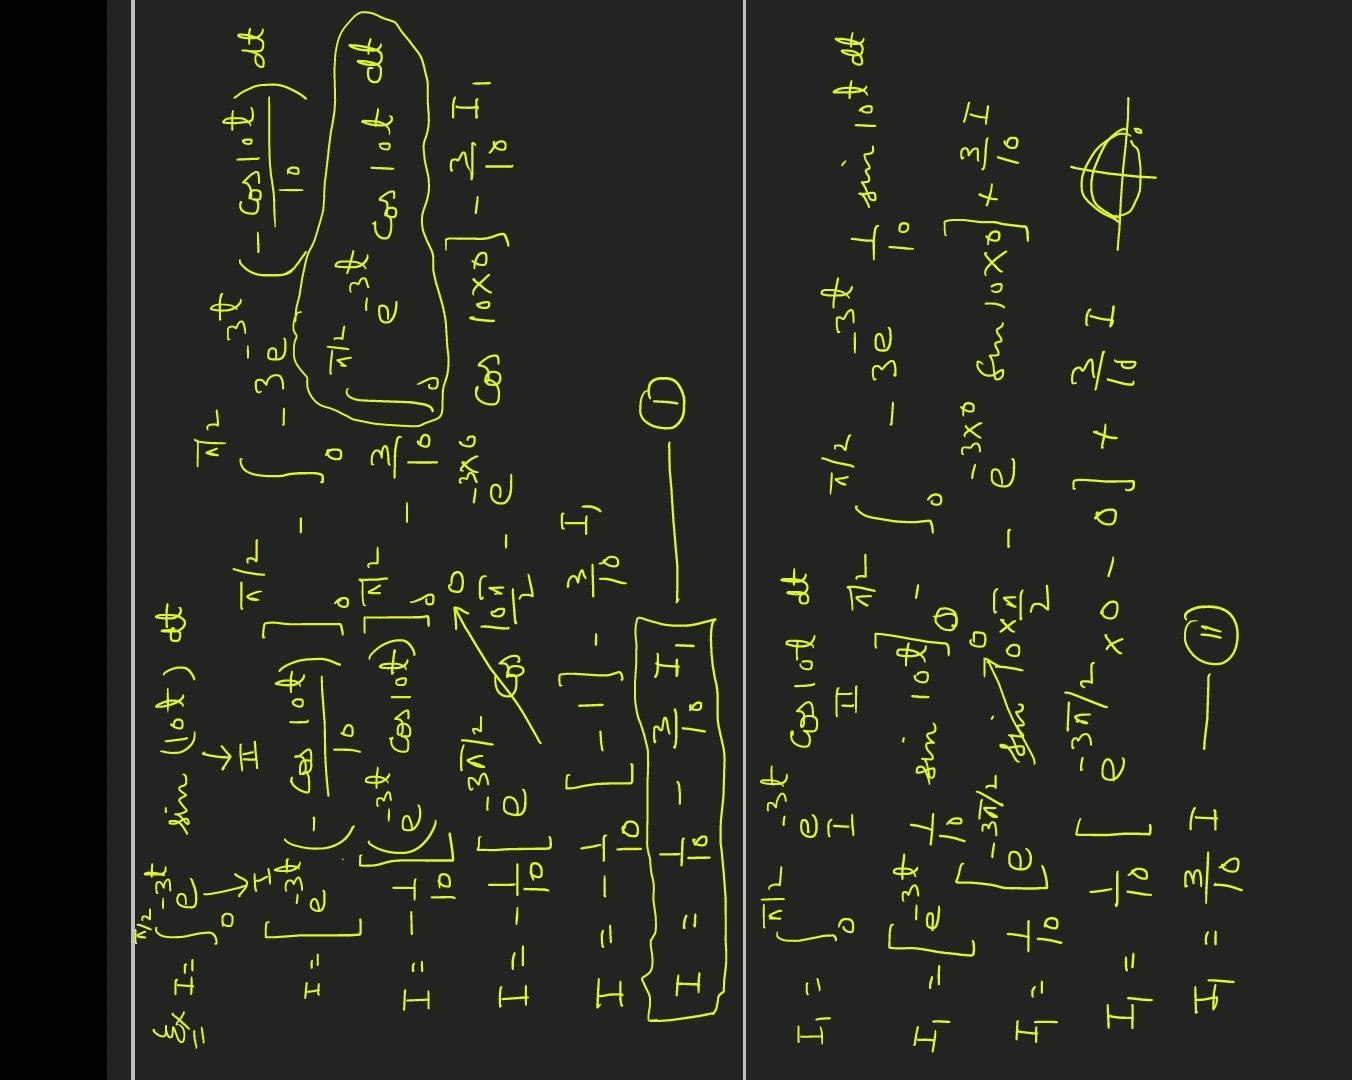 Ex I = ∫₀^{π/2} e^{-3t} sin (10t) dt
→ I → II
I = [e^{-3t} (- cos 10t / 10)]₀^{π/2} - ∫₀^{π/2} - 3e^{-3t} (- cos 10t / 10) dt
I = - 1/10 [(e^{-3t} cos 10t)]₀^{π/2} - 3/10 ∫₀^{π/2} e^{-3t} cos 10t dt
I = - 1/10 [e^{-3π/2} cos 10π/2 → 0 - e^{-3×0} cos 10×0] - 3/10 I₁
I = - 1/10 [- 1] - 3/10 I₁
I = 1/10 - 3/10 I₁ —— (I)
I₁ = ∫₀^{π/2} e^{-3t} cos 10t dt
I II
I₁ = [e^{-3t} 1/10 sin 10t]₀^{π/2} - ∫₀^{π/2} - 3e^{-3t} 1/10 sin 10t dt
I₁ = 1/10 [e^{-3π/2} sin 10×π/2 → 0 - e^{-3×0} sin 10×0] + 3/10 I
I₁ = 1/10 [e^{-3π/2} × 0 - 0] + 3/10 I
I₁ = 3/10 I —— (II)